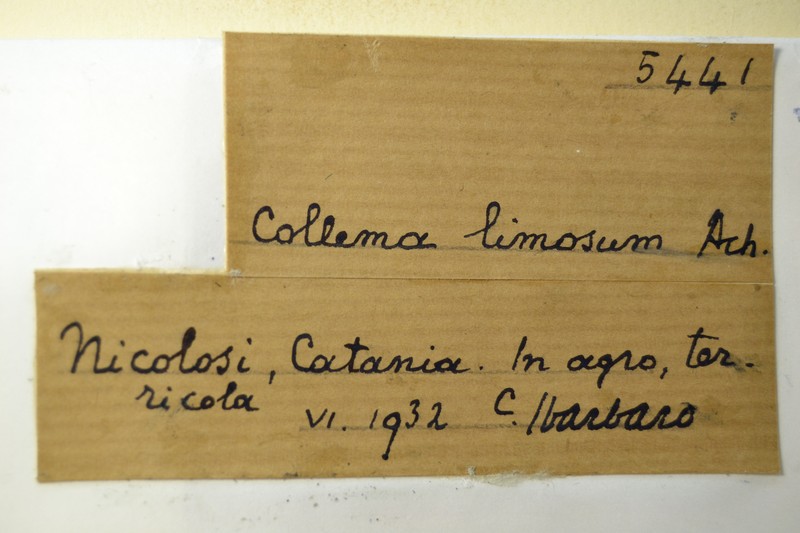 5441
Collema limosum Ach.
Nicolosi, Catania. In agro, ter-
ricola VI. 1932 C. Sbarbaro